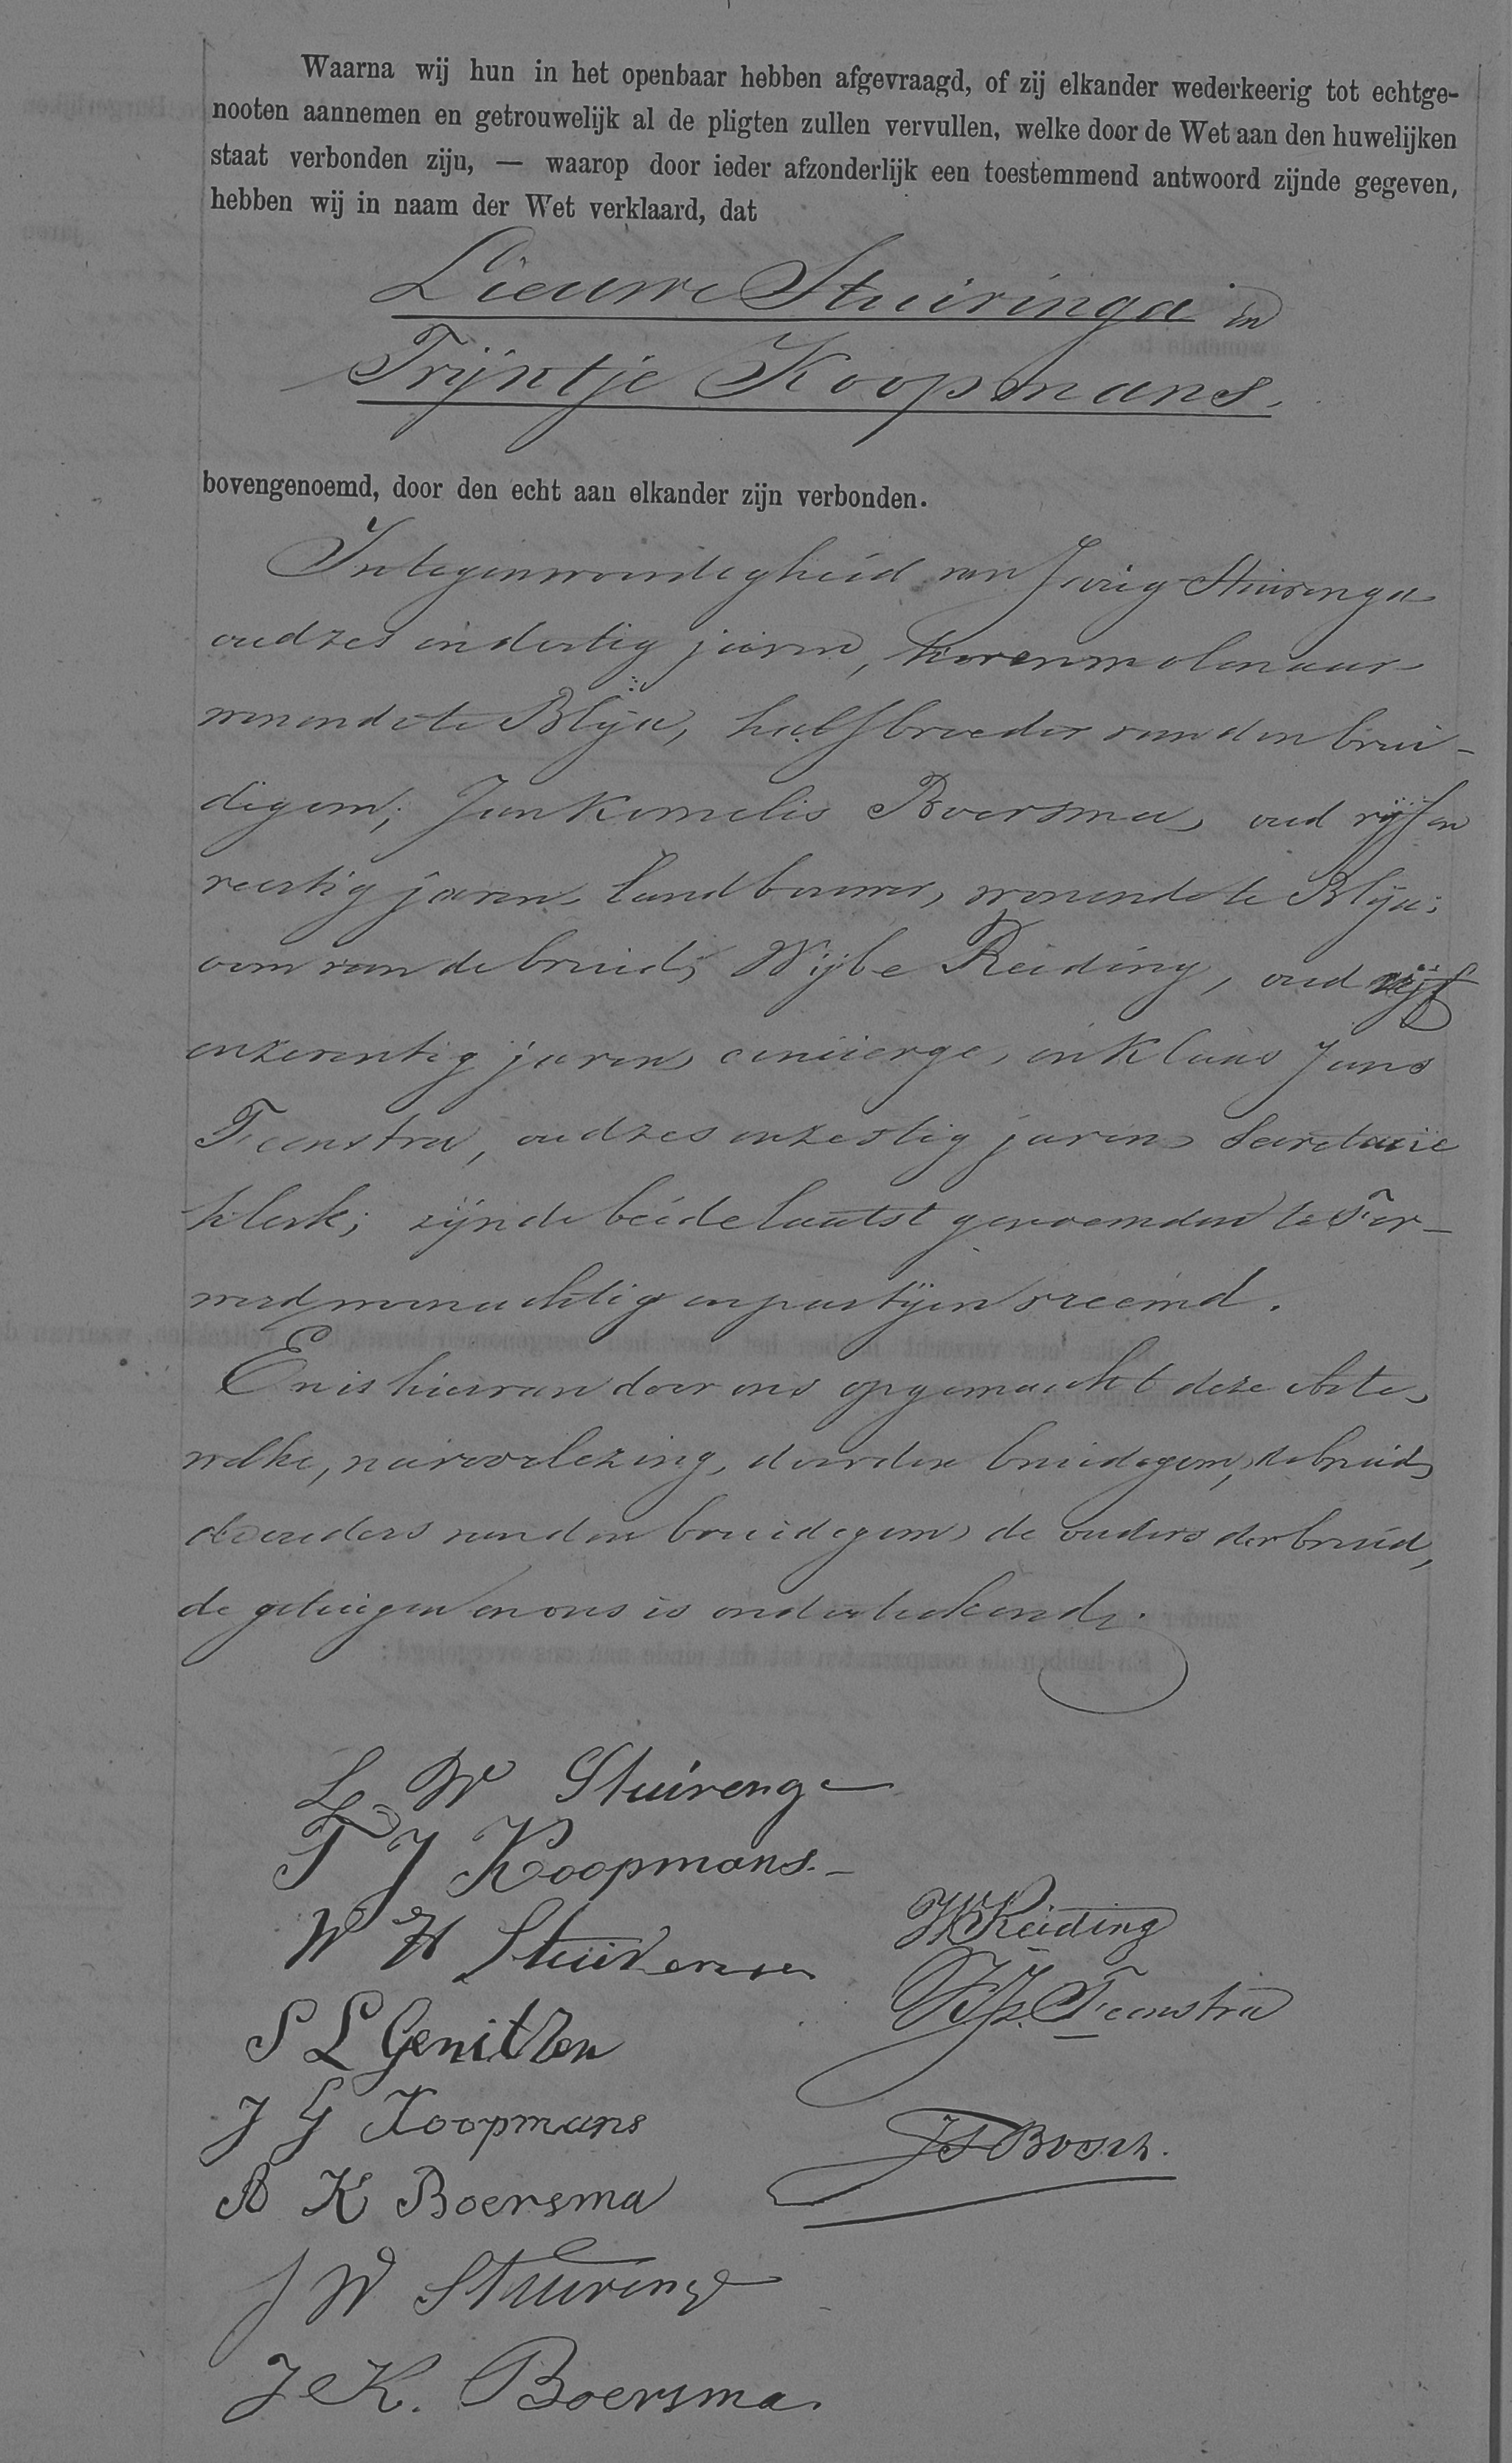 Waarna wij hun in het openbaar hebben afgevraagd, of zij elkander wederkeerig tot echtge-
nooten aannemen en getrouwelijk al de pligten zullen vervullen, welke door de Wet aan den huwelijken
staat verbonden zijn, — waarop door ieder afzonderlijk een toestemmend antwoord zijnde gegeven,
hebben wij in naam der Wet verklaard, dat
Lieuwe Stuiringa en
Trijntje Koopmans.
bovengenoemd, door den echt aan elkander zijn verbonden.
In tegenwoordigheid van Stuiringa
oud zes en dertig jaren, korenmolenaar
wonende te Blija, halfbroeder van den brui-
degom; Jan Kornelis Boersma, oud vijf en
veertig jaren, landbouwer, wonende te Blija;
oom van de bruid; Wijbe Reiding, oud vijf
en zeventig jaren, conciërge, en Klaas Jans
Feenstra, oud zes en zestig jaren, secretarie
klerk; zijnde beide laatst genoemden te Fer-
werd woonachtig en partijen vreemd.
En is hiervan door ons opgemaakt deze akte,
welke, na voorlezing, door den bruidegom, de bruid,
de ouders van den bruidegom, de ouders der bruid,
de getuigen en ons is onderteekend.
L W Stuirenga
T J Koopmans.
W H Stuivenga
W Reiding
K Js. Feenstra
S L Gerritzen
J G Koopmans
J S Bosch.
A K Boersma
J W Stuiringa
J K. Boersma.